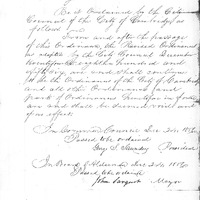 Be it ordained by the City
Council of the City of Cambridge as
follows
From and after the passage
of this Ordinance, the Revised Ordinances
as adopted by the City Council December
eighteen hundred and
fifty six, and shall
as the Ordinances of the City of Cambridge
and all other Ordinances and
parts of Ordinances heretofore in force
are and shall be null and void and
of no effect;
In Common Council Dec. 24. 1856
Passed to be ordained
Geo. S. President
In Board of Aldermen Dec. 24. 1856
Passed to be ordained
John Sargent Mayor